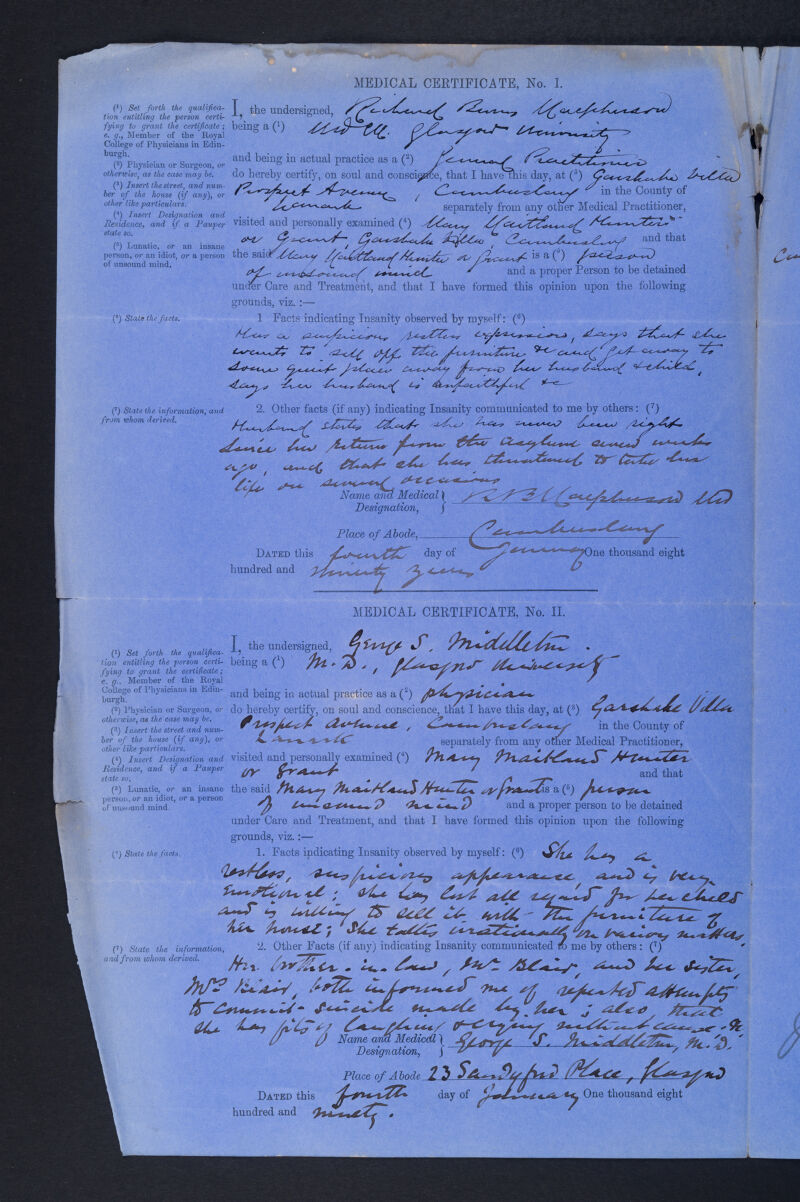 MEDICAL CERTIFICATE, No. I.
(¹) Set forth the qualifica-
tion entitling the person certi-
fying to grant the certificate;
e. g., Member of the Royal
College of Physicians in Edin-
burgh.
(²) Physician or Surgeon, or
otherwise, as the case may be.
(³) Insert the street, and num-
ber of the house (if any), or
other like particulars.
(⁴) Insert Designation and
Residence, and if a Pauper
state so.
(⁵) Lunatic, or an insane
person, or an idiot, or a person
of unsound mind.
I, the undersigned, Richard Burns Macpherson
being a (¹) M.D. Glasgow University
and being in actual practice as a (²) General Practitioner
do hereby certify, on soul and conscience, that I have this day, at (³) Garshake Villa
Prospect Avenue, Cambuslang in the County of
Lanark separately from any other Medical Practitioner,
visited and personally examined (⁴) Mary Maitland Hunter
or Grant, Garshake Villa, Cambuslang and that
the said Mary Maitland Hunter or Grant is a (⁵) person
of unsound mind and a proper Person to be detained
under Care and Treatment, and that I have formed this opinion upon the following
grounds, viz.:—
(⁶) State the facts.
1 Facts indicating Insanity observed by myself: (⁶)
Has a suspicious restless expression, says that she
wants to sell off the furniture &c and get away to
some quiet place away from her husband & child,
says her husband is unfaithful &c
(⁷) State the information, and
from whom derived.
2. Other facts (if any) indicating Insanity communicated to me by others: (⁷)
Husband states that she has never been right
since her return from the asylum seven weeks
ago, and that she has threatened to take her
life on several occasions
Name and Medical Designation, R B Macpherson MD
Place of Abode, Cambuslang
DATED this fourth day of January One thousand eight
hundred and ninety years
MEDICAL CERTIFICATE, No. II.
(¹) Set forth the qualifica-
tion entitling the person certi-
fying to grant the certificate;
e. g., Member of the Royal
College of Physicians in Edin-
burgh.
(²) Physician or Surgeon, or
otherwise, as the case may be.
(³) Insert the street and num-
ber of the house (if any), or
other like particulars.
(⁴) Insert Designation and
Residence, and if a Pauper
state so.
(⁵) Lunatic, or an insane
person, or an idiot, or a person
of unsound mind.
I, the undersigned, George S. Middleton.
being a (¹) M.D., Glasgow University
and being in actual practice as a (²) physician
do hereby certify, on soul and conscience, that I have this day, at (³) Garshake Villa
Prospect Avenue, Cambuslang in the County of
Lanark separately from any other Medical Practitioner,
visited and personally examined (⁴) Mary Maitland Hunter
or Grant and that
the said Mary Maitland Hunter or Grant is a (⁵) person
of unsound mind and a proper person to be detained
under Care and Treatment, and that I have formed this opinion upon the following
grounds, viz.:—
(⁶) State the facts.
1. Facts indicating Insanity observed by myself: (⁶) She has a
restless, suspicious appearance, and is very
emotional; she has lost all regard for her child
and is willing to sell it with the furniture of
her house; She talks irrationally on various matters.
(⁷) State the information,
and from whom derived.
2. Other Facts (if any) indicating Insanity communicated to me by others: (⁷)
Her brother-in-law, Mr Blair, and her sister,
Mrs Blair, both informed me of repeated attempts
to commit suicide made by her; also, that
she has fits of laughing & crying without cause, &c.
Name and Medical Designation, George S. Middleton, M.D.
Place of Abode 23 Sandyford Place, Glasgow
DATED this fourth day of January One thousand eight
hundred and ninety.